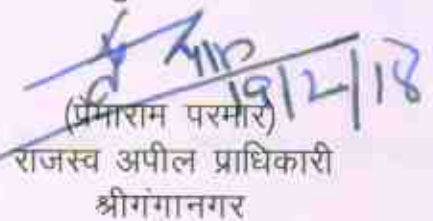 19/2/18
(प्रेमाराम परमार)
राजस्व अपील प्राधिकारी
श्रीगंगानगर